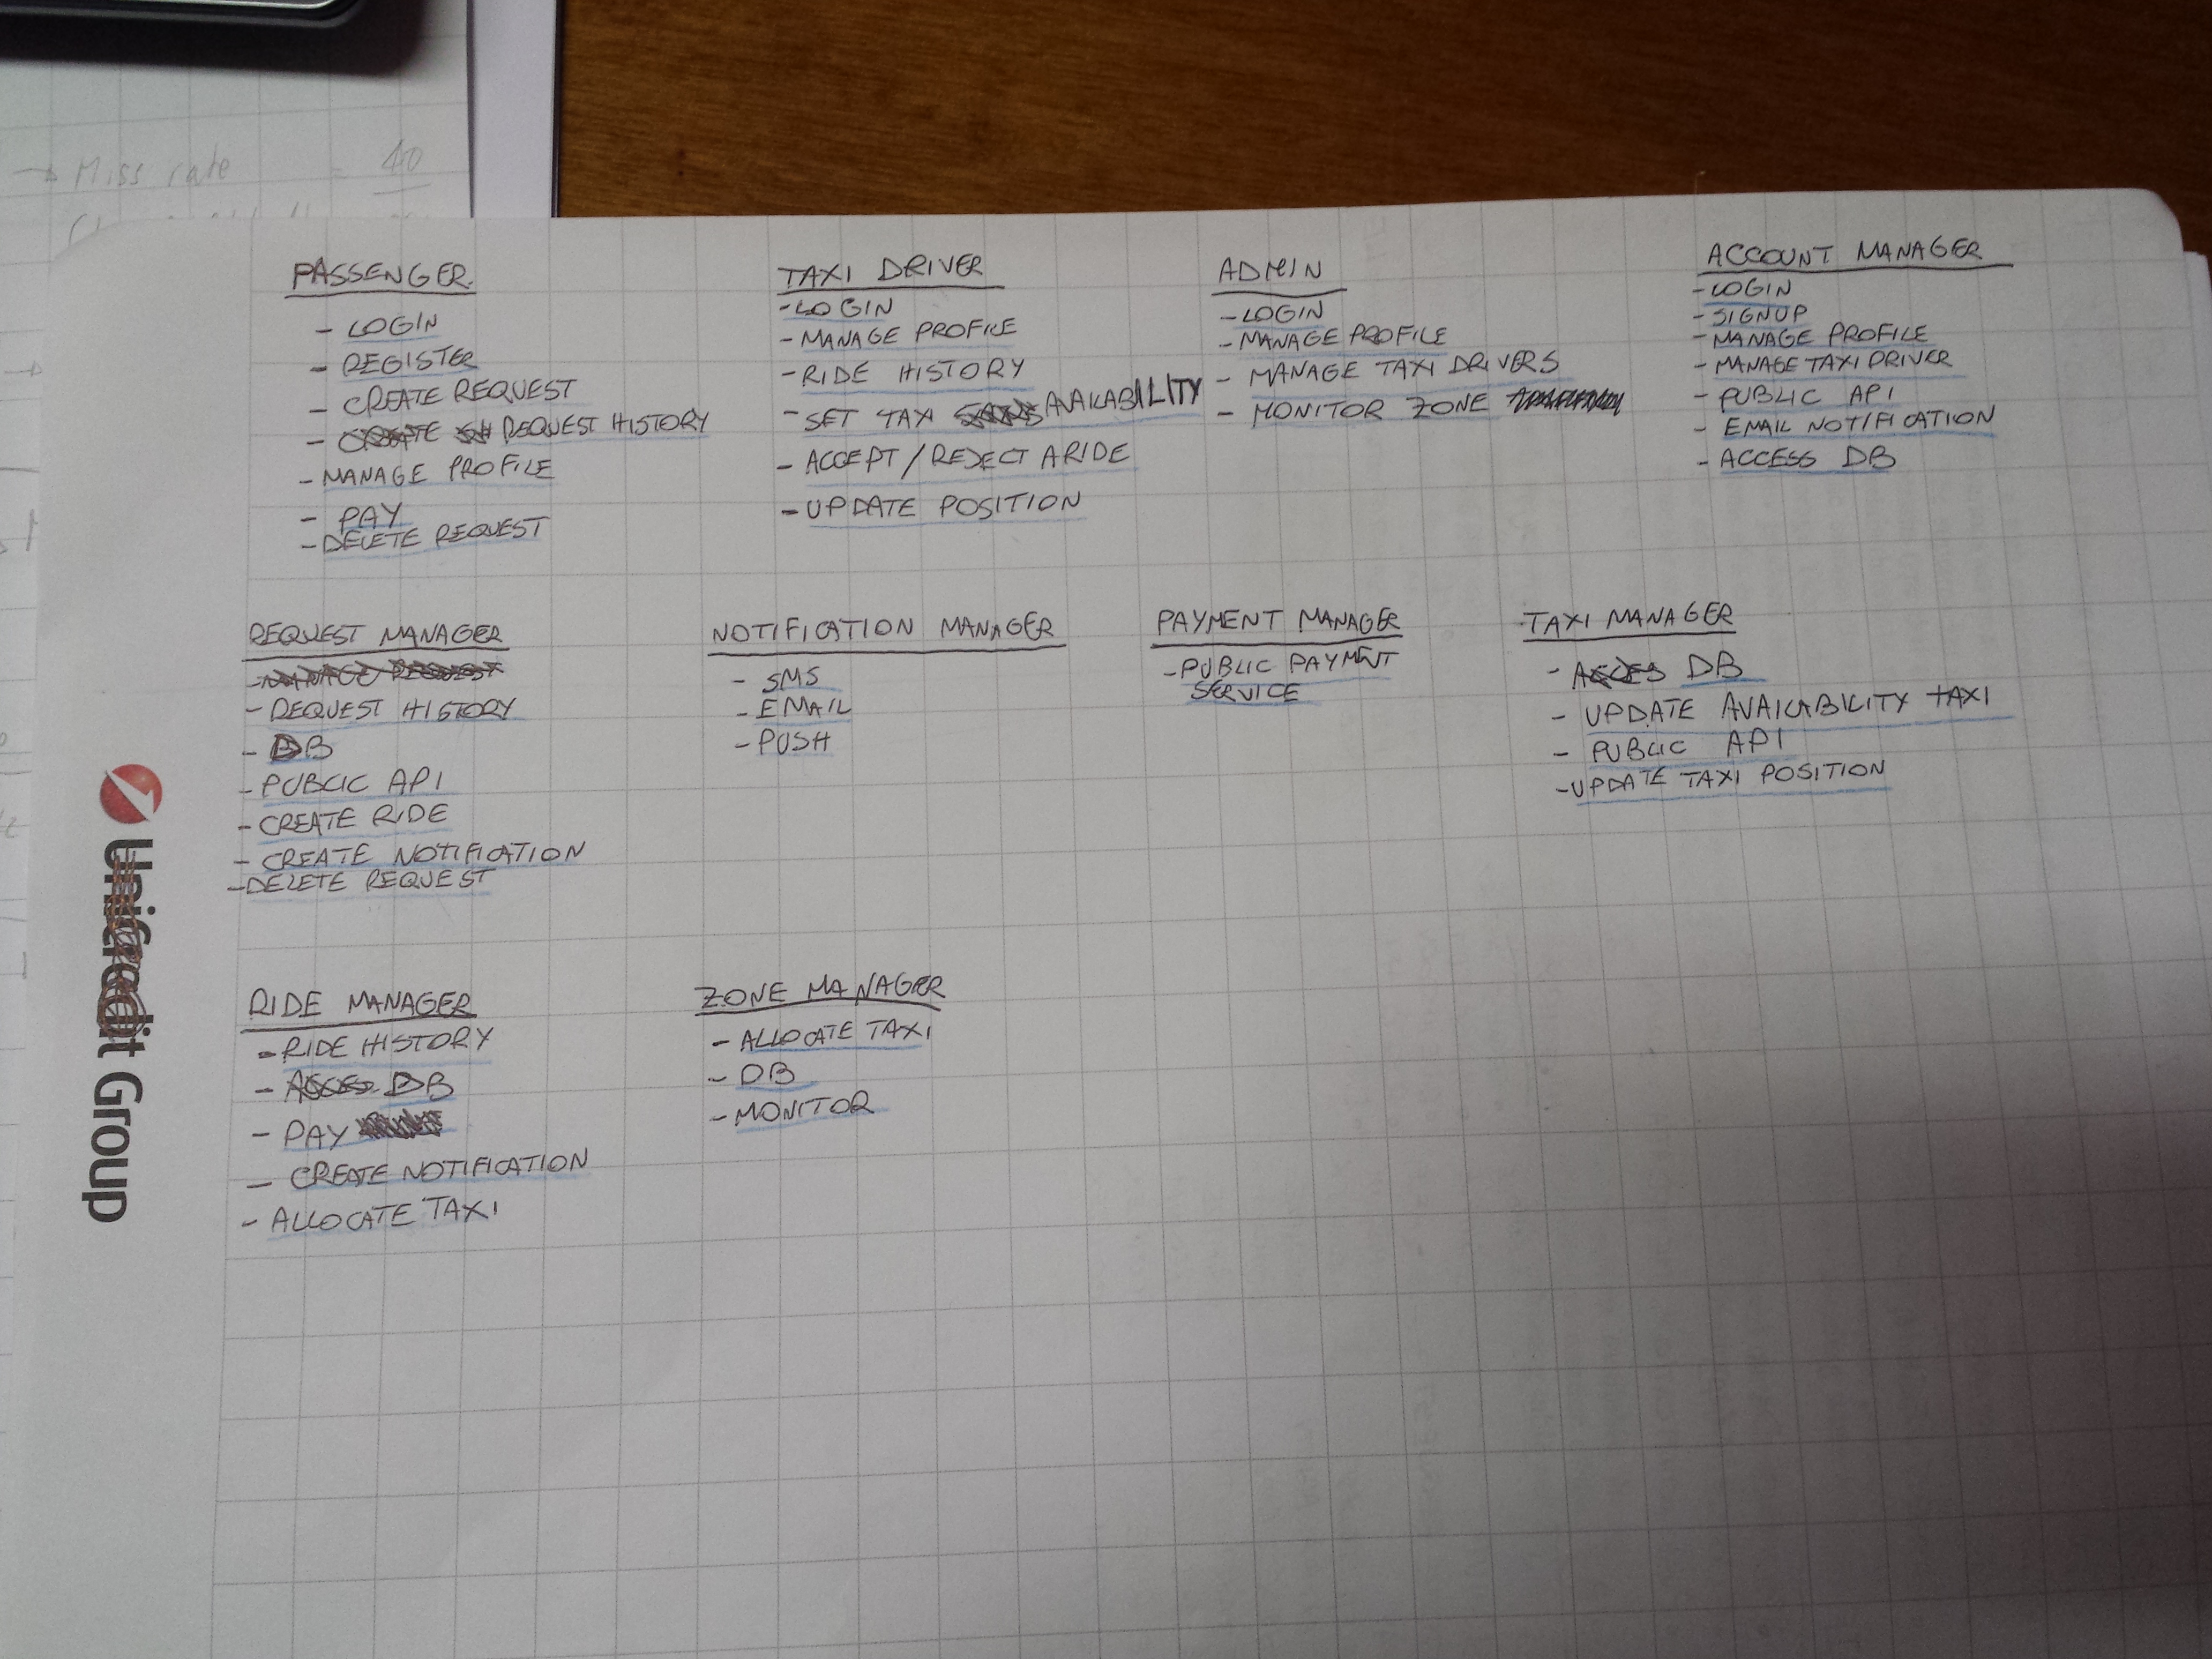 → Miss rate = 40
PASSENGER
- LOGIN
- REGISTER
- CREATE REQUEST
- REQUEST HISTORY
- MANAGE PROFILE
- PAY
- DELETE REQUEST
TAXI DRIVER
- LOGIN
- MANAGE PROFILE
- RIDE HISTORY
- SET TAXI AVAILABILITY
- ACCEPT / REJECT A RIDE
- UPDATE POSITION
ADMIN
- LOGIN
- MANAGE PROFILE
- MANAGE TAXI DRIVERS
- MONITOR ZONE
ACCOUNT MANAGER
- LOGIN
- SIGNUP
- MANAGE PROFILE
- MANAGE TAXI DRIVER
- PUBLIC API
- EMAIL NOTIFICATION
- ACCESS DB
REQUEST MANAGER
- MANAGE REQUEST
- REQUEST HISTORY
- DB
- PUBLIC API
- CREATE RIDE
- CREATE NOTIFICATION
- DELETE REQUEST
NOTIFICATION MANAGER
- SMS
- EMAIL
- PUSH
PAYMENT MANAGER
- PUBLIC PAYMENT
SERVICE
TAXI MANAGER
- ACCES DB
- UPDATE AVAILABILITY TAXI
- PUBLIC API
- UPDATE TAXI POSITION
RIDE MANAGER
- RIDE HISTORY
- ACCES DB
- PAY
- CREATE NOTIFICATION
- ALLOCATE TAXI
ZONE MANAGER
- ALLOCATE TAXI
- DB
- MONITOR
UniCredit Group